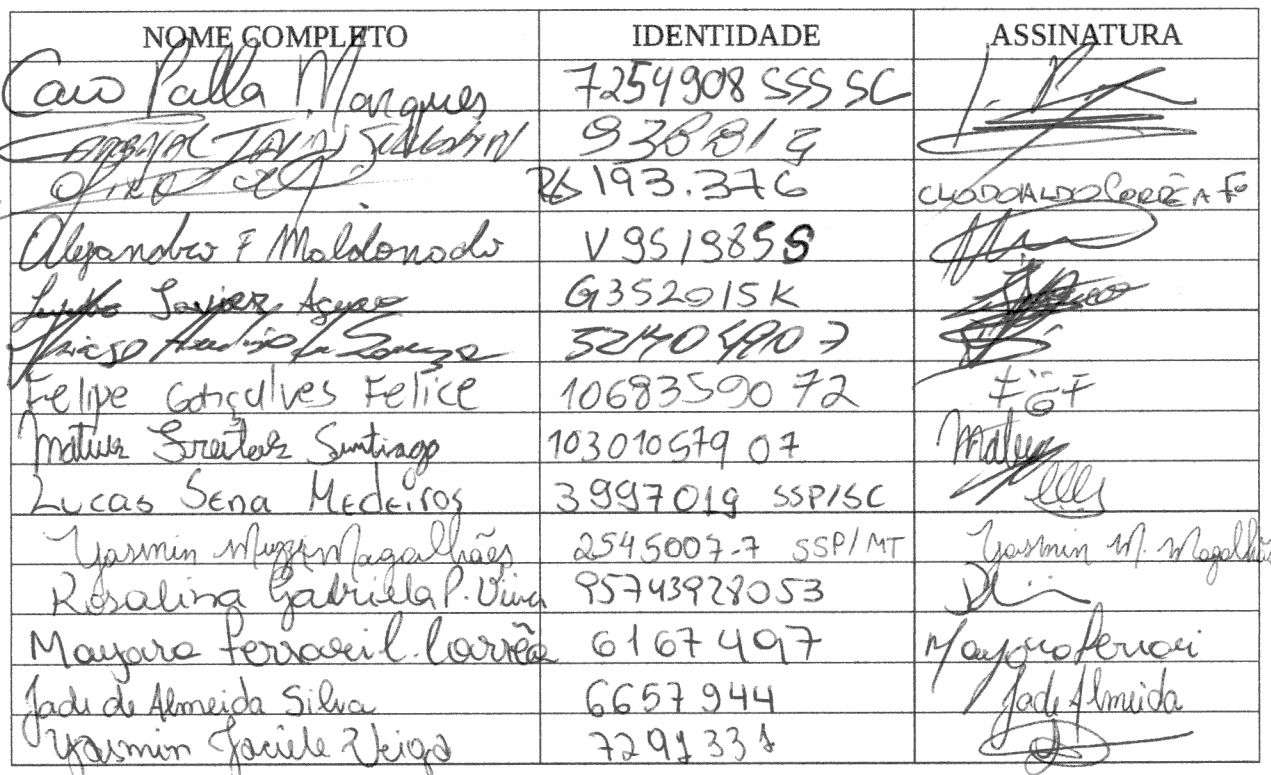 NOME COMPLETO IDENTIDADE ASSINATURA
Caio Palla Marques 7254908 SSS SC
93881
193.376 CLODOALDO CORRÊA Fo
Alejandro F Maldonado V951985S
Javier Agüero G352015K
Thiago de Souza
Felipe Gonçalves Felice 10683590 72 FGF
Mateus Freitas Santiago 103010579 07 Mateus
Lucas Sena Medeiros 3997019 SSP/SC
Yasmin Muzzi Magalhães 2545007-7 SSP/MT Yasmin M. Magalhães
Rosalina Gabriella P. 95743928053
Mayara Ferrari L. Corrêa 6167497 Mayara Ferrari
Jade de Almeida Silva 6657944 Jade Almeida
Yasmin Jaciele Veiga 7291331